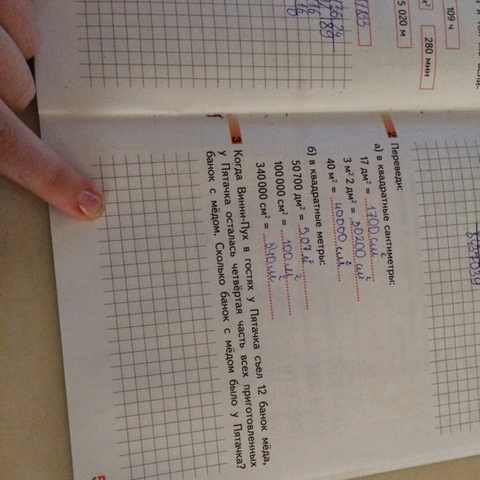 109 ч
280 мин
5 020 м
2 Переведи:
а) в квадратные сантиметры:
17 дм² = 1700 см²
3 м² 2 дм² = 30200 см²
40 м² = 40000 см²
б) в квадратные метры:
50 700 дм² = 507 м²
100 000 см² = 100 м²
340 000 см² =
3 Когда Винни-Пух в гостях у Пятачка съел 12 банок мёда,
у Пятачка осталась четвёртая часть всех приготовленных
банок с мёдом. Сколько банок с мёдом было у Пятачка?